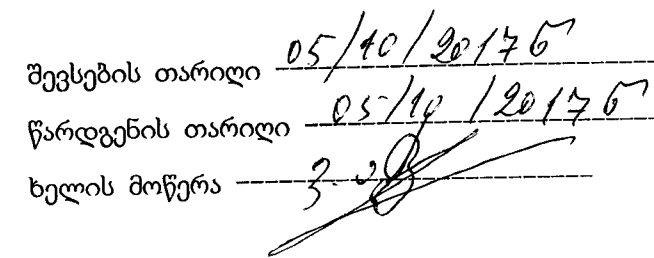 შევსების თარიღი 05/10/2017წ
წარდგენის თარიღი 05/10/2017წ
ხელის მოწერა